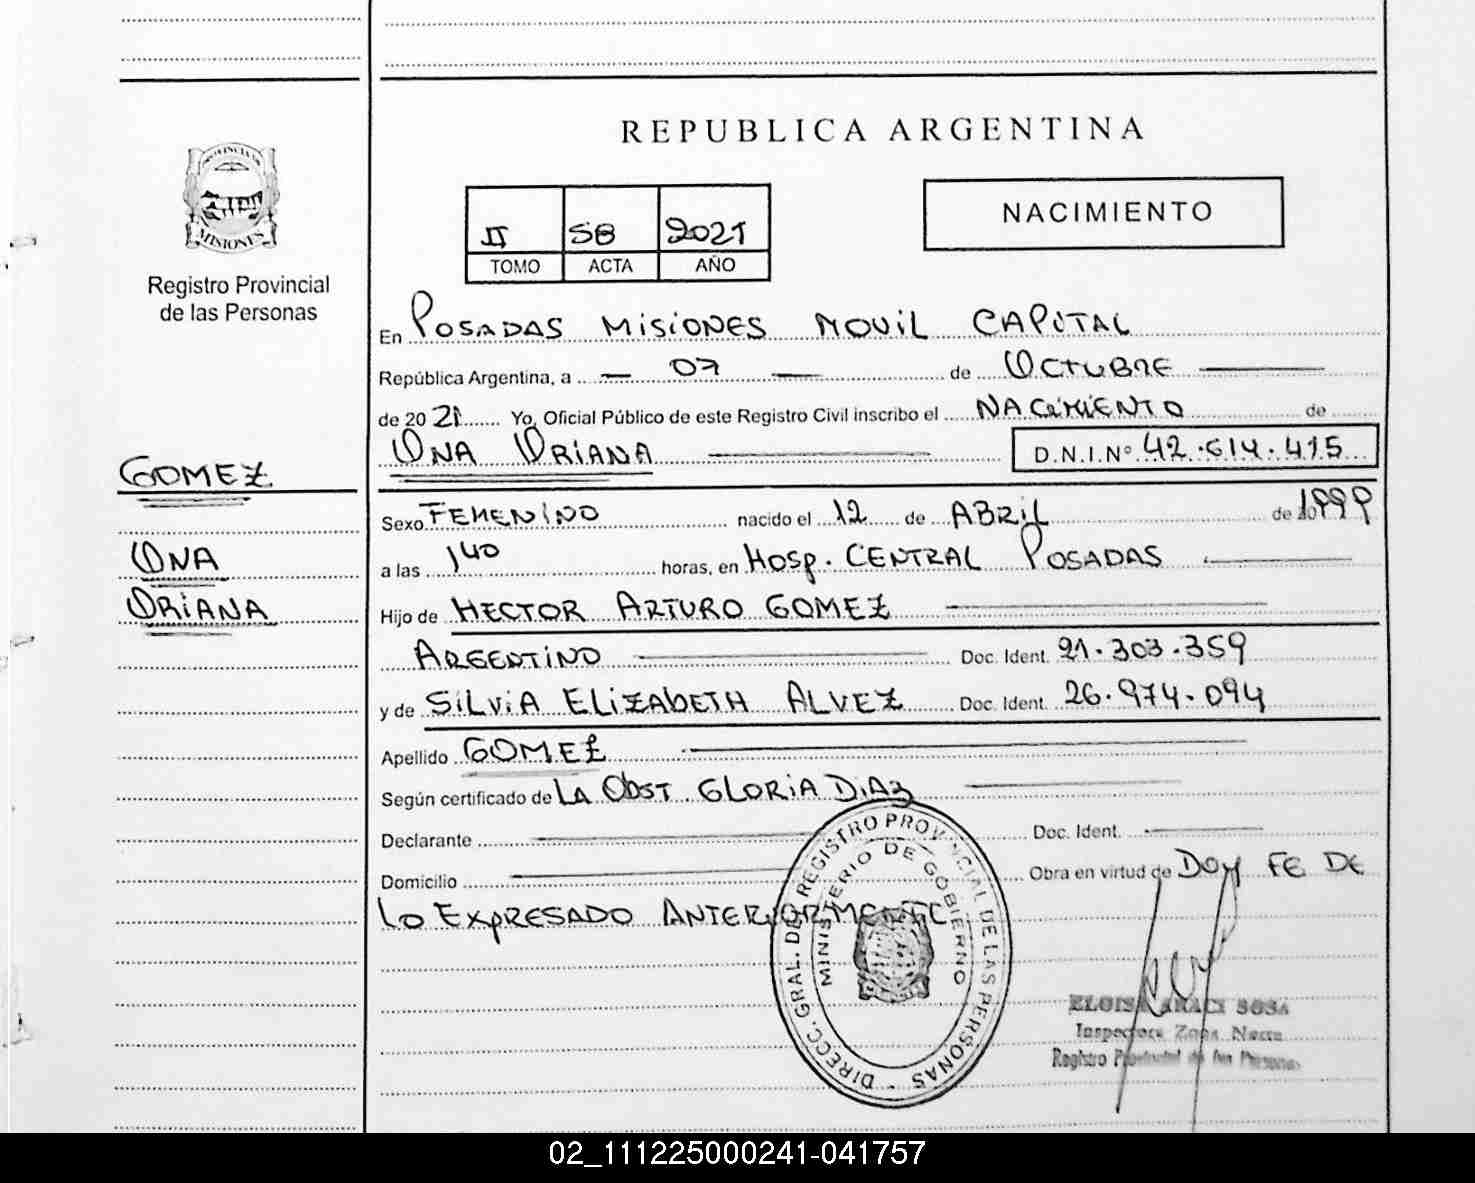 REPUBLICA ARGENTINA
NACIMIENTO
II 58 2021
TOMO ACTA AÑO
PROVINCIA DE
MISIONES
Registro Provincial
de las Personas
En POSADAS MISIONES MOVIL CAPITAL
República Argentina, a 07 de OCTUBRE
de 20 21 Yo, Oficial Público de este Registro Civil inscribo el NACIMIENTO de
ONA ORIANA D.N.I.Nº 42.614.415
GOMEZ
ONA
ORIANA
Sexo FEMENINO nacido el 12 de ABRIL de 1999
a las 140 horas, en HOSP. CENTRAL POSADAS
Hijo de HECTOR ARTURO GOMEZ
ARGENTINO Doc. Ident. 21.303.359
y de SILVIA ELIZABETH ALVEZ Doc. Ident. 26.974.094
Apellido GOMEZ
Según certificado de LA OBST GLORIA DIAZ
Declarante Doc. Ident.
Domicilio Obra en virtud de DOY FE DE
LO EXPRESADO ANTERIORMENTE
DIRECC. GRAL. DEL REGISTRO PROVINCIAL DE LAS PERSONAS
MINISTERIO DE GOBIERNO
ELOISA ARACI SOSA
Inspectora Zona Norte
Registro Provincial de las Personas
02_111225000241-041757